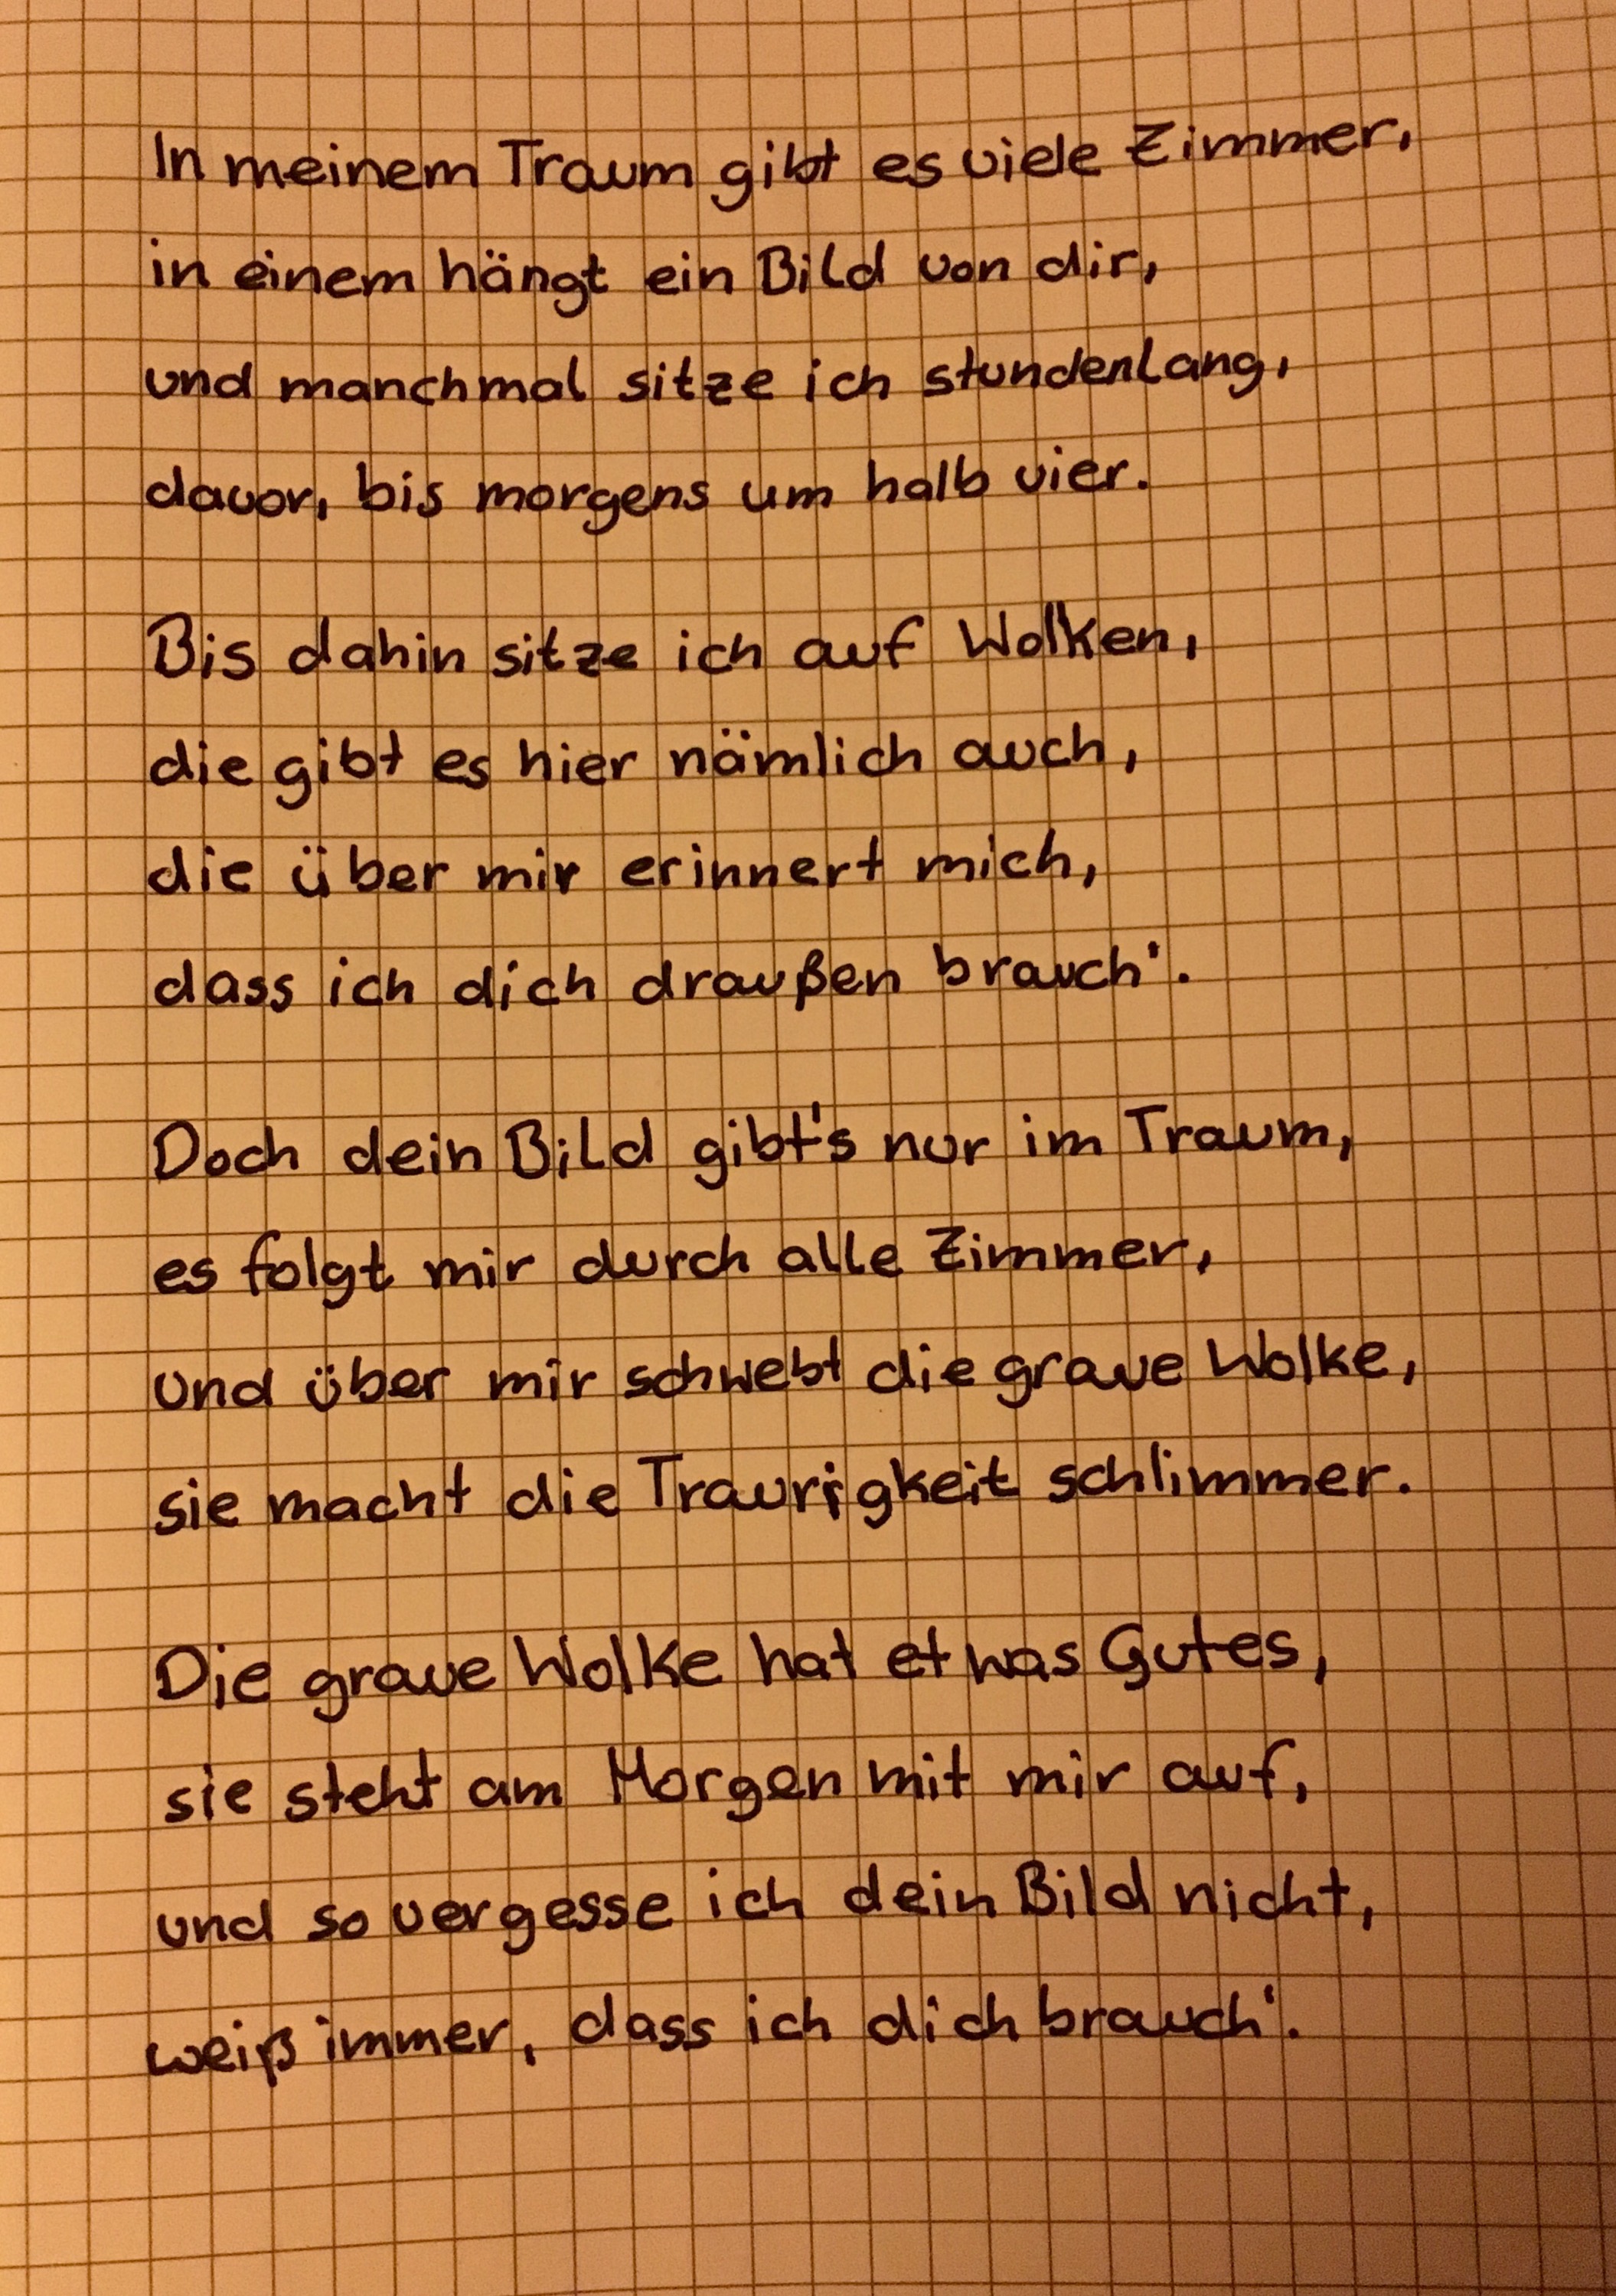 In meinem Traum gibt es viele Zimmer,
in einem hängt ein Bild von dir,
und manchmal sitze ich stundenlang,
davor, bis morgens um halb vier.
Bis dahin sitze ich auf Wolken,
die gibt es hier nämlich auch,
die über mir erinnert mich,
dass ich dich draußen brauch'.
Doch dein Bild gibt's nur im Traum,
es folgt mir durch alle Zimmer,
und über mir schwebt die graue Wolke,
sie macht die Traurigkeit schlimmer.
Die graue Wolke hat etwas Gutes,
sie steht am Morgen mit mir auf,
und so vergesse ich dein Bild nicht,
weiß immer, dass ich dich brauch'.